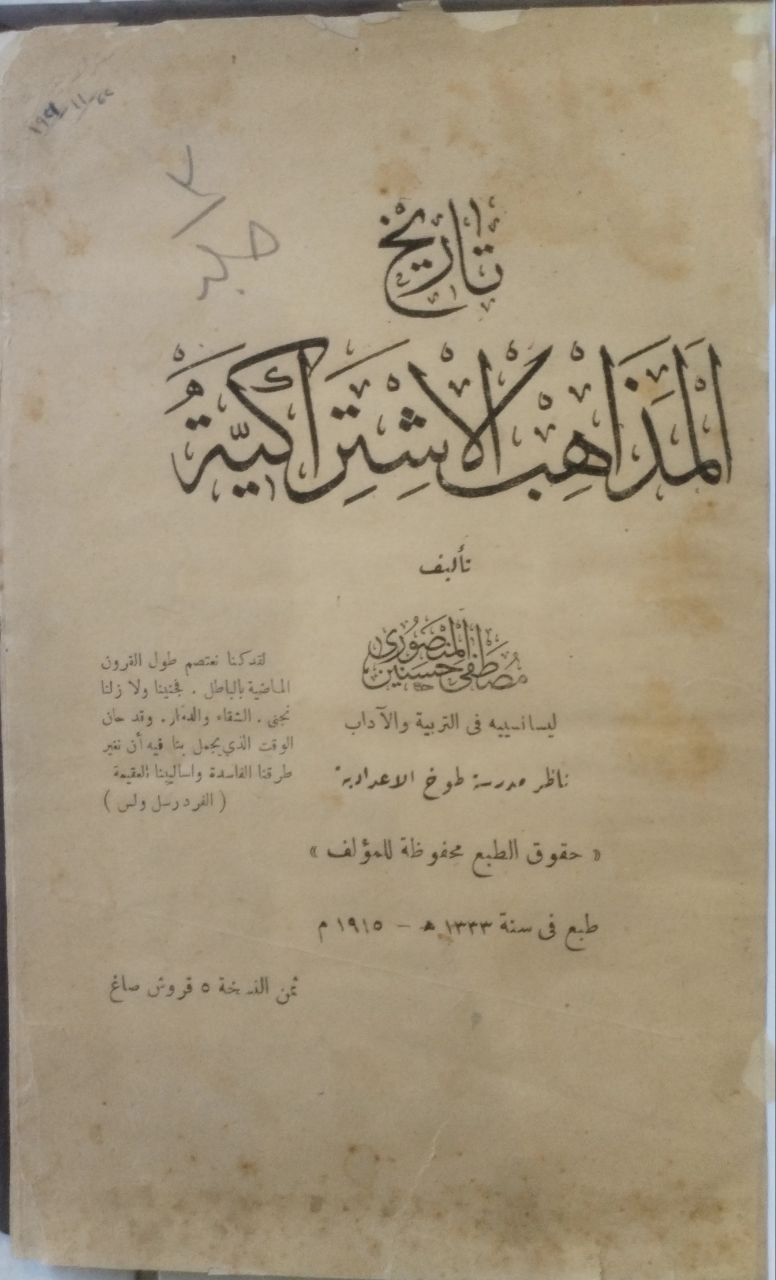 ٣
تاريخ
المَذَاهِب الاشِتِراكيَّةُ
تأليف
مُصَطفى حسنين المنصُورى
ليسانسييه فى التربية والآداب
ناظر مدرسة طوخ الاعدادية
لقد كنا نعتصم طول القرون
الماضية بالباطل . فجنينا ولا زلنا
نجنى . الشقاء والدمار . وقد حان
الوقت الذي يجمل بنا فيه أن نغير
طرقنا الفاسدة واساليبنا العقيمة
( الفرد رسل ولس )
« حقوق الطبع محفوظة للمؤلف »
طبع فى سنة ١٣٣٣ ھ – ١٩١٥ م
ثمن النسخة ٥ قروش صاغ